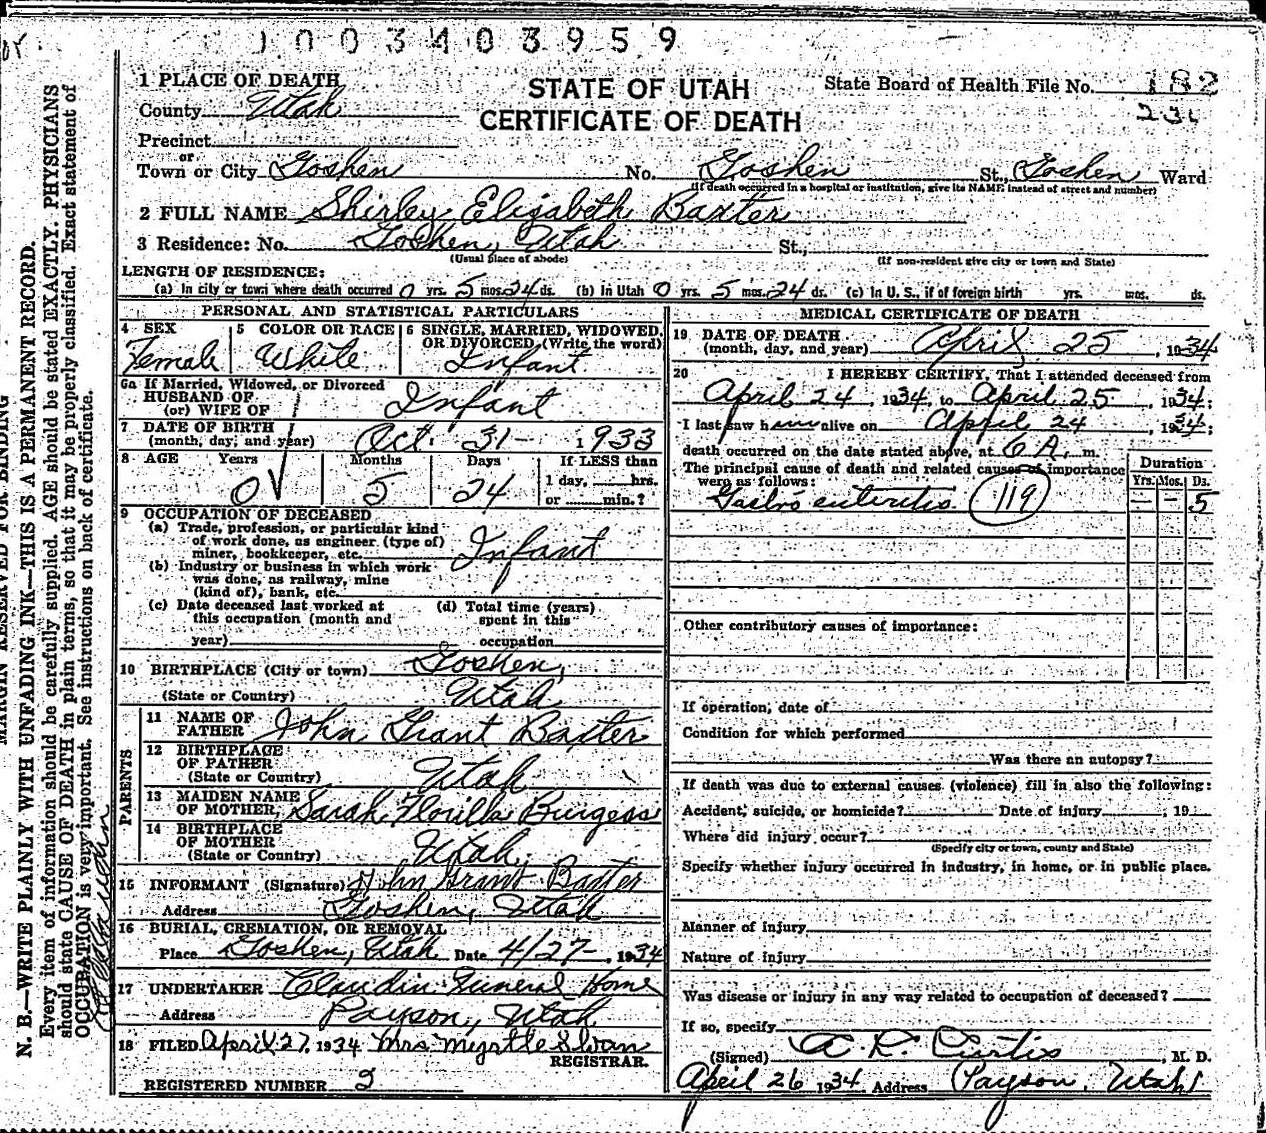 1003403959
1 PLACE OF DEATH
STATE OF UTAH
CERTIFICATE OF DEATH
State Board of Health File No. 182
County Utah
Precinct
or
Town or City Goshen No. Goshen St., Goshen Ward
(If death occurred in a hospital or institution, give its NAME instead of street and number)
2 FULL NAME Shirley Elizabeth Baxter
3 Residence: No. Goshen, Utah St.,
(Usual place of abode) (If non-resident give city or town and State)
LENGTH OF RESIDENCE:
(a) In city or town where death occurred 0 yrs. 5 mos. 24 ds. (b) in Utah 0 yrs. 5 mos. 24 ds. (c) In U. S., if of foreign birth yrs. mos. ds.
PERSONAL AND STATISTICAL PARTICULARS
4 SEX Female
5 COLOR OR RACE White
6 SINGLE, MARRIED, WIDOWED, OR DIVORCED (Write the word) Infant
6a If Married, Widowed, or Divorced
HUSBAND OF
(or) WIFE OF Infant
7 DATE OF BIRTH
(month, day, and year) Oct. 31 - 1933
8 AGE Years Months Days If LESS than
0 5 24 1 day, hrs.
or min.?
9 OCCUPATION OF DECEASED
(a) Trade, profession, or particular kind
of work done, as engineer (type of)
miner, bookkeeper, etc. Infant
(b) Industry or business in which work
was done, as railway, mine
(kind of), bank, etc.
(c) Date deceased last worked at
this occupation (month and
year)
(d) Total time (years)
spent in this
occupation
10 BIRTHPLACE (City or town) Goshen,
(State or Country) Utah
PARENTS
11 NAME OF
FATHER John Grant Baxter
12 BIRTHPLACE
OF FATHER
(State or Country) Utah
13 MAIDEN NAME
OF MOTHER Sarah Florilla Burgess
14 BIRTHPLACE
OF MOTHER
(State or Country) Utah
15 INFORMANT (Signature) John Grant Baxter
Address Goshen, Utah
16 BURIAL, CREMATION, OR REMOVAL
Place Goshen, Utah Date 4/27- 1934
17 UNDERTAKER Claudin Funeral Home
Address Payson, Utah
18 FILED April 27, 1934 Mrs Myrtle Swan
REGISTRAR.
REGISTERED NUMBER
MEDICAL CERTIFICATE OF DEATH
19 DATE OF DEATH
(month, day, and year) April 25, 1934
20 I HEREBY CERTIFY, That I attended deceased from
April 24, 1934, to April 25, 1934;
I last saw h alive on April 24, 1934;
death occurred on the date stated above, at 6 A. m.
The principal cause of death and related causes of importance
were as follows:
Duration
Yrs. Mos. Ds.
Gastro enteritis 119 — — 5
Other contributory causes of importance:
If operation, date of
Condition for which performed
Was there an autopsy?
If death was due to external causes (violence) fill in also the following:
Accident, suicide, or homicide? Date of injury , 19
Where did injury occur?
(Specify city or town, county and State)
Specify whether injury occurred in industry, in home, or in public place.
Manner of injury
Nature of injury
Was disease or injury in any way related to occupation of deceased?
If so, specify
(Signed) A. L. Curtis, M. D.
April 26 1934 Address Payson, Utah
MARGIN RESERVED FOR BINDING
N. B.—WRITE PLAINLY WITH UNFADING INK—THIS IS A PERMANENT RECORD.
Every item of information should be carefully supplied. AGE should be stated EXACTLY. PHYSICIANS
should state CAUSE OF DEATH in plain terms, so that it may be properly classified. Exact statement of
OCCUPATION is very important. See instructions on back of certificate.